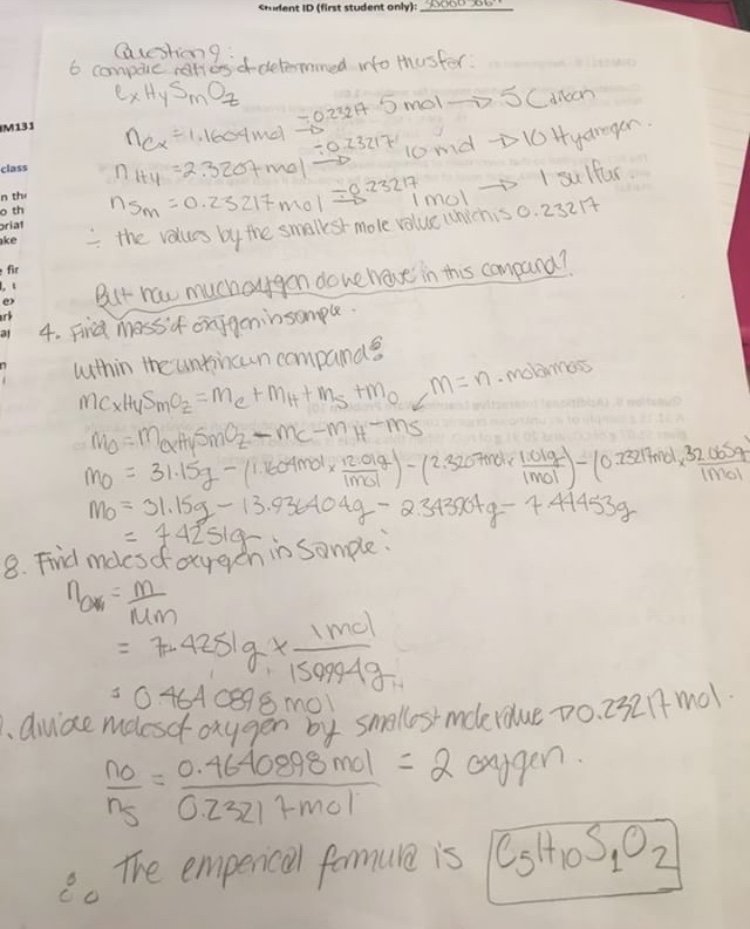 Student ID (first student only):
Question 9:
6 compare ratios of determined info thusfar:
CxHySmOz
nCx = 1.1604mol ÷0.23217 → 5 mol → 5 Carbon
nHy = 2.3207mol ÷0.23217 → 10 mol → 10 Hydrogen.
nSm = 0.23217mol ÷0.23217 → 1mol → 1 sulfur.
÷ the values by the smallest mole value which is 0.23217
But how much oxygen do we have in this compound?
4. Find mass of oxygen in sample.
within the unknown compound:
mCxHySmOz = mC + mH + mS + mO m = n · molarmass
mO = mCxHySmOz - mC - mH - mS
mO = 31.15g - (1.1604mol × 12.01g/1mol) - (2.3207mol × 1.01g/1mol) - (0.23217mol × 32.065g/1mol)
mO = 31.15g - 13.936404g - 2.343907g - 7.44453g
= 7.4251g
8. Find moles of oxygen in sample:
= m/Mm
= 7.4251g × 1mol/15.9994g
= 0.4640898mol
. divide moles of oxygen by smallest mole value → 0.23217mol.
no/ns = 0.4640898mol/0.23217mol = 2 oxygen.
∴ The emperical formula is C5H10S1O2
IM131
class
n the
o th
oriat
ake